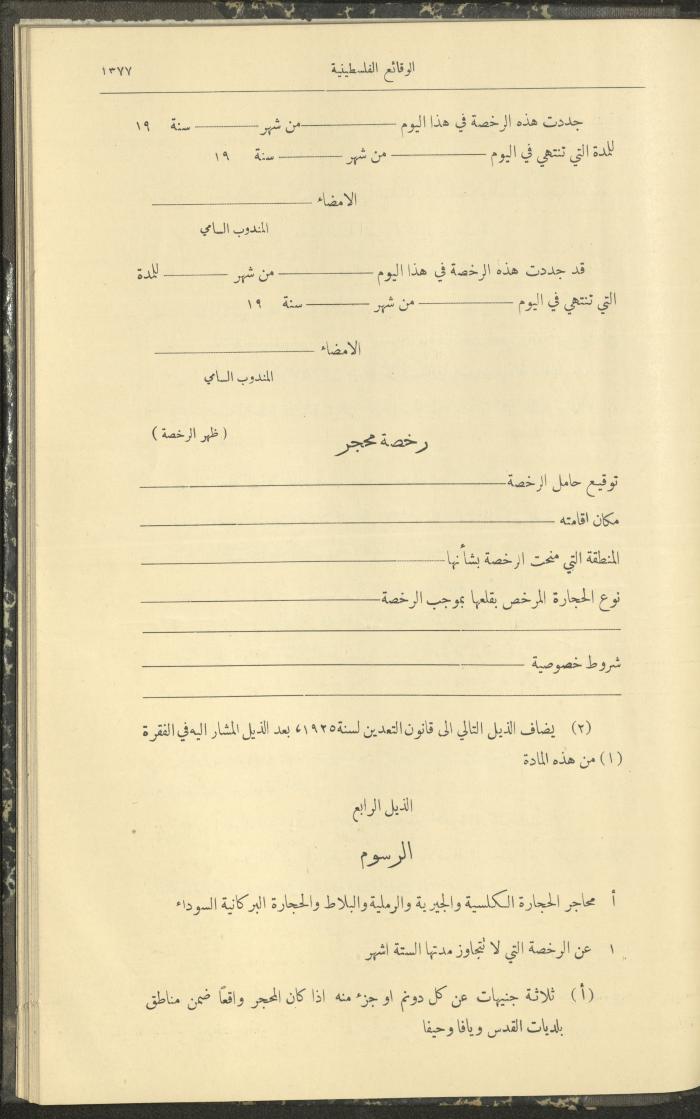 الوقائع الفلسطينية ١٣٧٧
جددت هذه الرخصة في هذا اليوم ـــــــ من شهر ـــــــ سنة ١٩
للمدة التي تنتهي في اليوم ـــــــ من شهر ـــــــ سنة ١٩
الامضاء ـــــــ
المندوب السامي
قد جددت هذه الرخصة في هذا اليوم ـــــــ من شهر ـــــــ للمدة
التي تنتهي في اليوم ـــــــ من شهر ـــــــ سنة ١٩
الامضاء ـــــــ
المندوب السامي
رخصة محجر ( ظهر الرخصة )
توقيع حامل الرخصة ـــــــ
مكان اقامته ـــــــ
المنطقة التي منحت الرخصة بشأنها ـــــــ
نوع الحجارة المرخص بقلعها بموجب الرخصة ـــــــ
شروط خصوصية ـــــــ
(٢) يضاف الذيل التالي الى قانون التعدين لسنة ١٩٢٥، بعد الذيل المشار اليه في الفقرة
(١) من هذه المادة
الذيل الرابع
الرسوم
أ محاجر الحجارة الكلسية والجيرية والرملية والبلاط والحجارة البركانية السوداء
١ عن الرخصة التي لا تتجاوز مدتها الستة اشهر
(أ) ثلاثة جنيهات عن كل دونم او جزء منه اذا كان المحجر واقعًا ضمن مناطق
بلديات القدس ويافا وحيفا